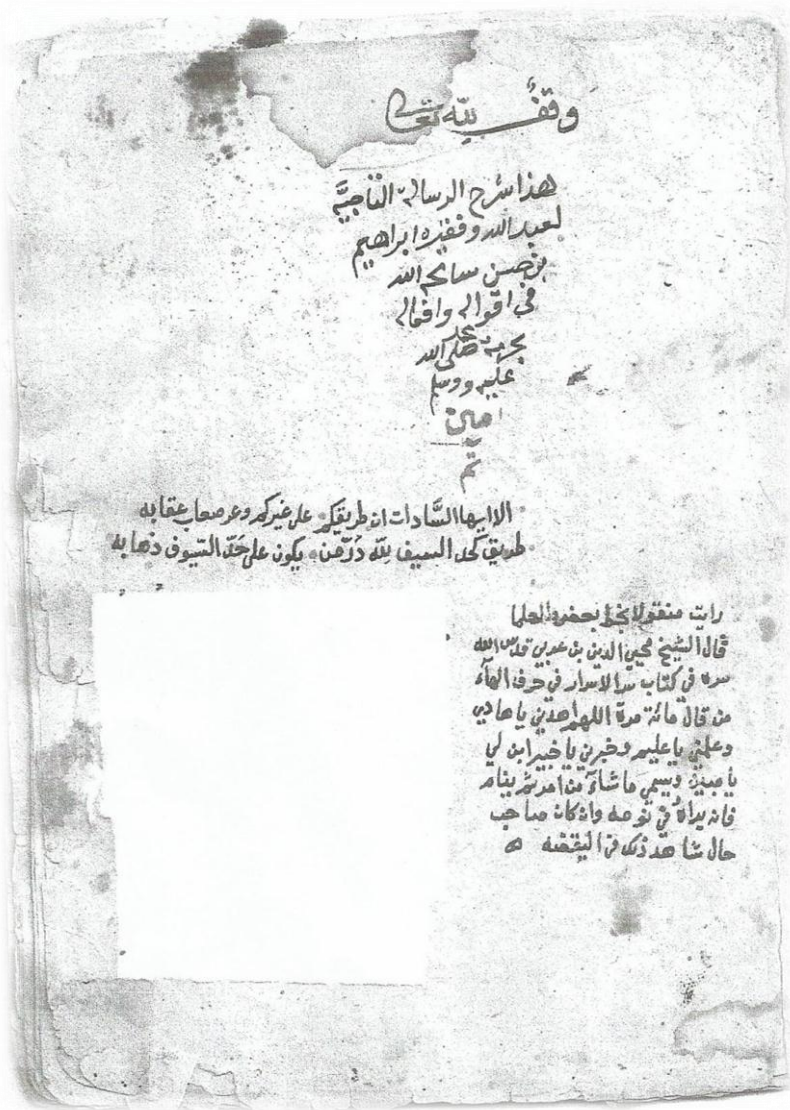 وقف لله تعالى
هذا شرح الرسالة التاجيَّة
لعبد الله وفقيره ابراهيم
بن حسن سامحه الله
في اقواله وافعاله
بحرمة محمد صلى الله
عليه ووسلم
امين
تم
الا ايها السَّادات ان طريقكم على غيركم وعر صعاب عقابه
طريق كحد السيف لله دَرّ من يكون على حَدّ السّيوف ذهابه
رايت منقولا بخط بعض العلما
قال الشيخ محيي الدين بن عربي قدس الله
سره في كتاب سر الاسرار في حرف الهآء
من قال مائة مرة اللهم اهدني يا هادي
وعلمني يا عليم وخبرني يا خبير ابن لي
يا مبين ويسمي ما شآء من امر ثم ينام
فانه يراهُ في نومه وان كان صاحب
حال شاهد ذلك في اليقضه ه